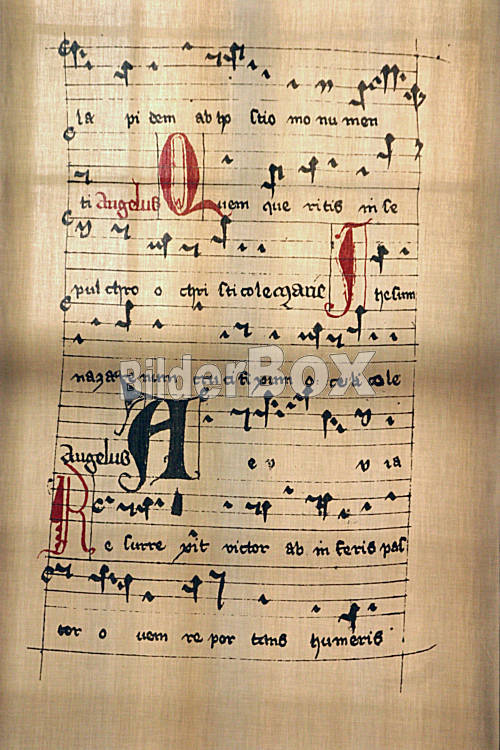 la pi dem ab hp stio mo nu men
ti Angelus Quem que ritis in se
pul chro o chri sti cole Marie Ihesum
nazarenum cruci fixum o celi cole
Angelus A e v v ia
Re surre xit victor ab in feris pas
tor o vem re por tans humeris
BilderBox